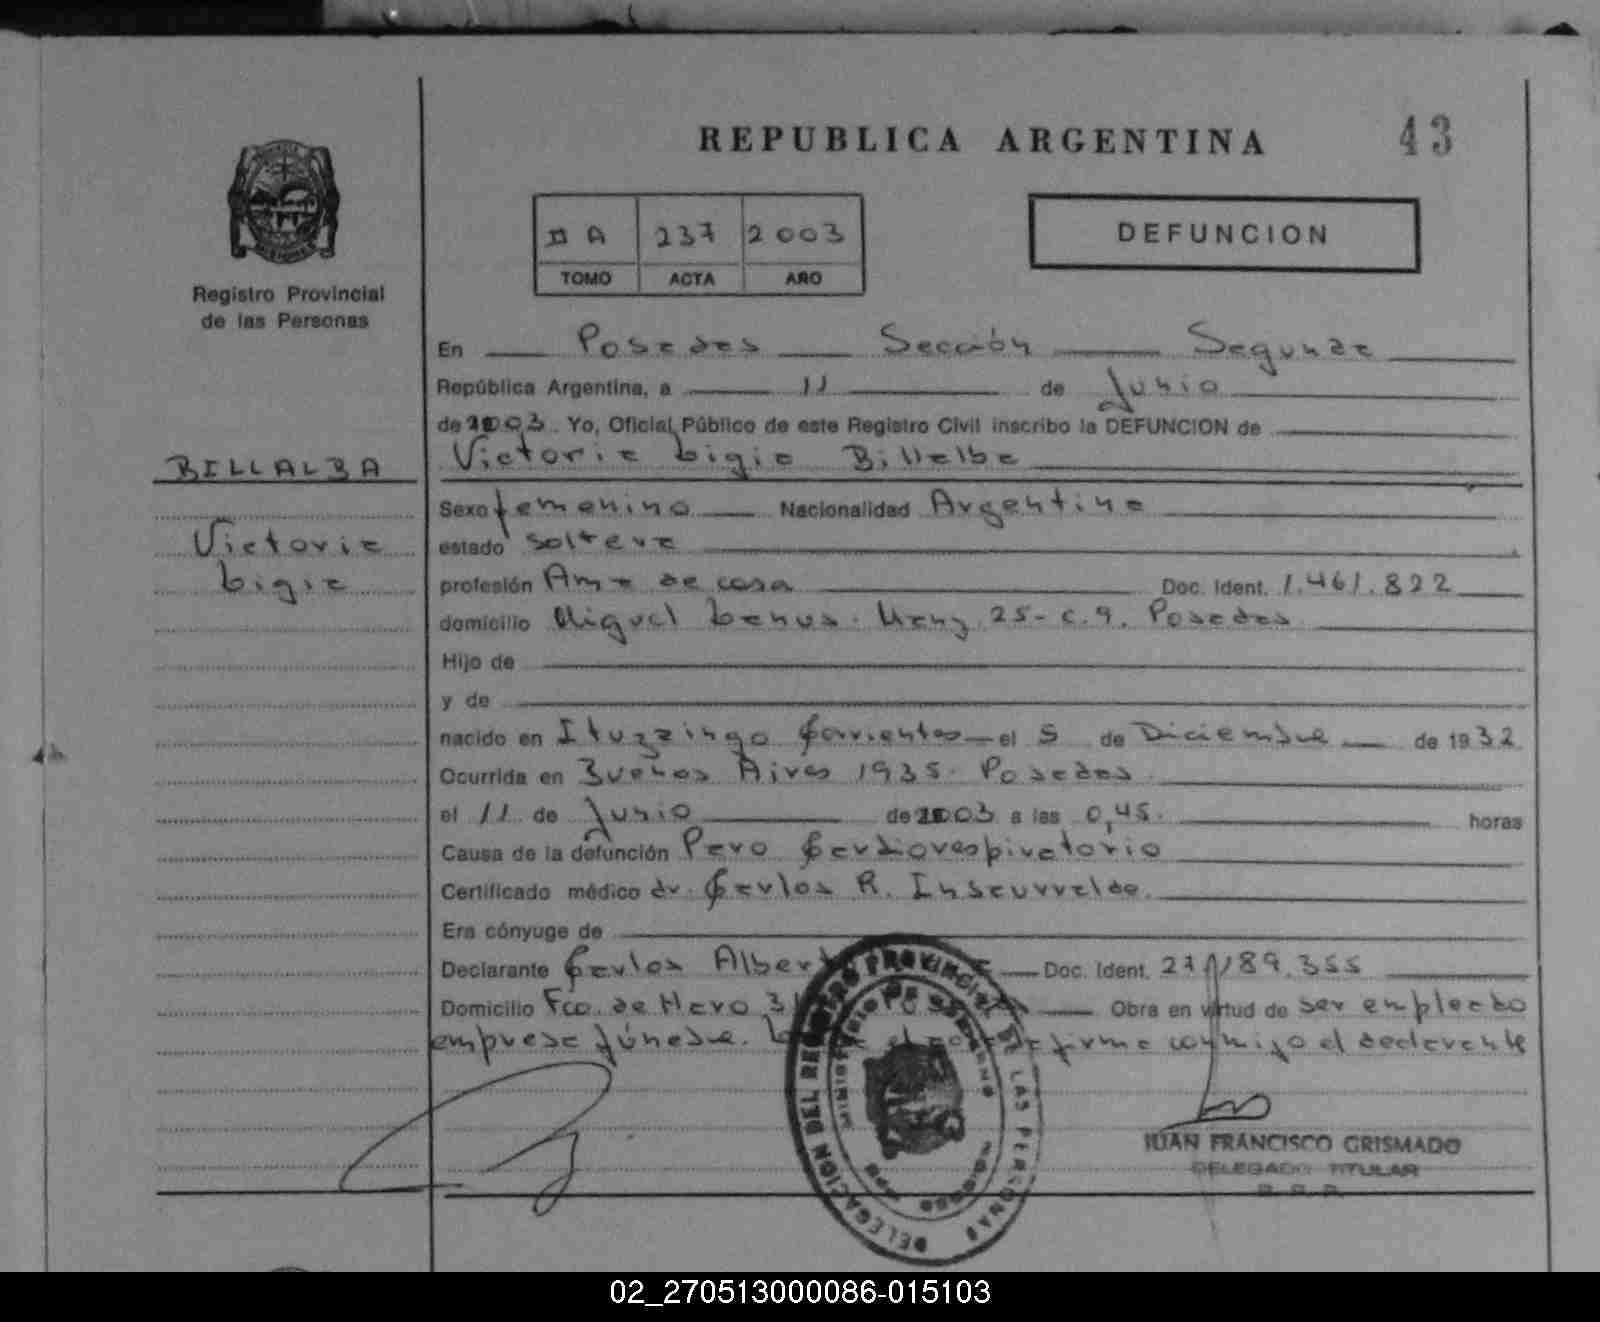 REPUBLICA ARGENTINA 43
II A 237 2003
TOMO ACTA AÑO
DEFUNCION
Registro Provincial
de las Personas
En Posadas Sección Segunda
República Argentina, a 11 de Junio
de 2003. Yo, Oficial Público de este Registro Civil inscribo la DEFUNCION de
BILLALBA
Victoria Ligia Billalba
Victoria
Ligia
Sexo femenino Nacionalidad Argentina
estado soltera
profesión Ama de casa Doc. Ident. 1.461.822
domicilio Miguel Lanus. Manz 25- c. 9. Posadas
Hijo de
y de
nacido en Ituzaingo Corrientes el 5 de Diciembre de 1932
Ocurrida en Buenos Aires 1935. Posadas
el 11 de Junio de 2003 a las 0,45. horas
Causa de la defunción Paro Cardiorespiratorio
Certificado médico dr. Carlos R. Insaurralde.
Era cónyuge de
Declarante Carlos Doc. Ident. 27.189.355
Domicilio Fco. de Haro Obra en virtud de ser empleado
empresa fúnebre. firma conmigo el declarante
DELEGACION DEL REGISTRO PROVINCIAL DE LAS PERSONAS
MINISTERIO DE GOBIERNO
JUAN FRANCISCO GRISMADO
DELEGADO TITULAR
R. P. P.
02_270513000086-015103